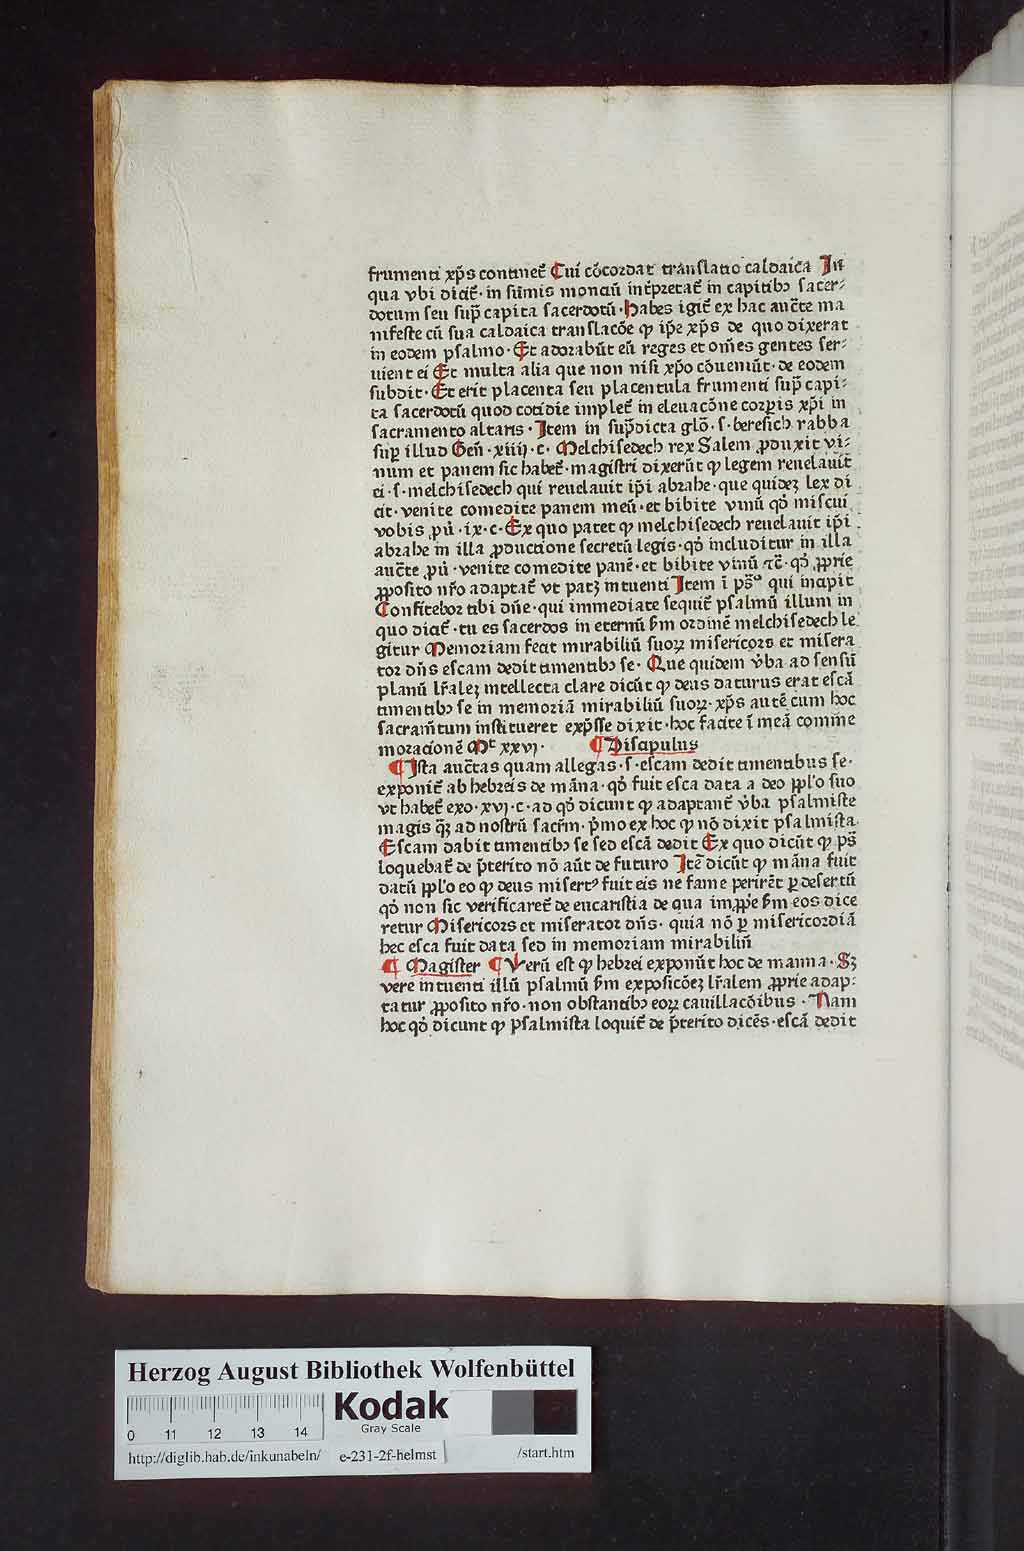 frumenti xp̄s continet᷑ Cui cōcordat translatio caldaica In
qua vbi dicit᷑· in sūmis monciū int̄pretat᷑ in capitibꝫ sacer⸗
dotum seu sup̄ capita sacerdotū· Habes igit᷑ ex hac auct̄e ma
nifeste cū sua caldaica translacōe ꝙ ip̄e xp̄s de quo dixerat
in eodem psalmo· Et adorabūt eū reges et om̄es gentes ser⸗
uient ei Et multa alia que non nisi xp̄o cōueniūt· de eodem
subdit· Et erit placenta seu placentula frumenti sup̄ capi⸗
ta sacerdotū quod cotidie implet᷑ in eleuacōne corp̄is xp̄i in
sacramento altaris· Item in sup̄dicta glō· s· beresich rabba
sup̄ illud Gen̄· xiiij· c· Melchisedech rex Salem ꝓduxit vi⸗
num et panem sic habet᷑· magistri dixerūt ꝙ legem reuelauit
ei· s· melchisedech qui reuelauit ip̄i abrahe· que quideꝫ lex di
cit· venite comedite panem meū· et bibite vinū qd̓ miscui
vobis ꝓu̓· ix· c· Ex quo patet ꝙ melchisedech reuelauit ip̄i
abrahe in illa ꝓductione secretū legis· qd̓ includitur in illa
auct̄e ꝓu̓· venite comedite panē· et bibite vinū ⁊c̄· qd̓ ꝓprie
ꝓposito nr̄o adaptat᷑ vt patꝫ intuenti Item ī pˢ̄º qui incipit
Confitebor tibi dn̄e· qui immediate sequit᷑ psalmū illum in
quo dicit᷑· tu es sacerdos in eternū ẜm ordinē melchisedech le
gitur Memoriam fecit mirabiliū suoꝝ misericors et misera
tor dn̄s escam dedit timentibꝫ se· Que quidem v̓ba ad sensū
planū lr̄aleꝫ intellecta clare dicūt ꝙ deus daturus erat escā
timentibꝫ se in memoriā mirabiliū suoꝝ· xp̄s autē cum hoc
sacram̄tum institueret exp̄sse dixit· hoc facite ī meā comme
moracionē Mᵗ xxvj· ¶ Discipulus
¶ Ista auct̄as quam allegas· s· escam dedit timentibus se·
exponit᷑ ab hebreis de māna· qd̓ fuit esca data a deo ppl̓o suo
vt habet᷑ exo· xvj· c· ad qd̓ dicunt ꝙ adaptant᷑ v̓ba psalmiste
magis qꝫ̄ ad nostrū sacr̄m· p̄mo ex hoc ꝙ nō dixit psalmista
Escam dabit timentibꝫ se sed escā dedit Ex quo dicūt ꝙ pˢ̄
loquebat᷑ de p̄terito nō aūt de futuro Itē dicūt ꝙ māna fuit
datū ppl̓o eo ꝙ deus misertꝰ fuit eis ne fame perirēt ꝑ desertū
qd̓ non sic verificaret᷑ de eucaristia de qua imꝓp̄e ẜm eos dice
retur Misericors et miserator dn̄s· quia nō ꝑ misericordiā
hec esca fuit data sed in memoriam mirabiliū
¶ Magister ¶ Verū est ꝙ hebrei exponūt hoc de manna· Sꝫ
vere intuenti illū psalmū ẜm exposicōeꝫ lr̄alem ꝓprie adap⸗
tatur ꝓposito nr̄o· non obstantibꝫ eoꝝ cauillacōibus· Nam
hoc qd̓ dicunt ꝙ psalmista loquit᷑ de p̄terito dicēs· escā dedit
Herzog August Bibliothek Wolfenbüttel
0 11 12 13 14
Kodak
Gray Scale
http://diglib.hab.de/inkunabeln/ e-231-2f-helmst /start.htm